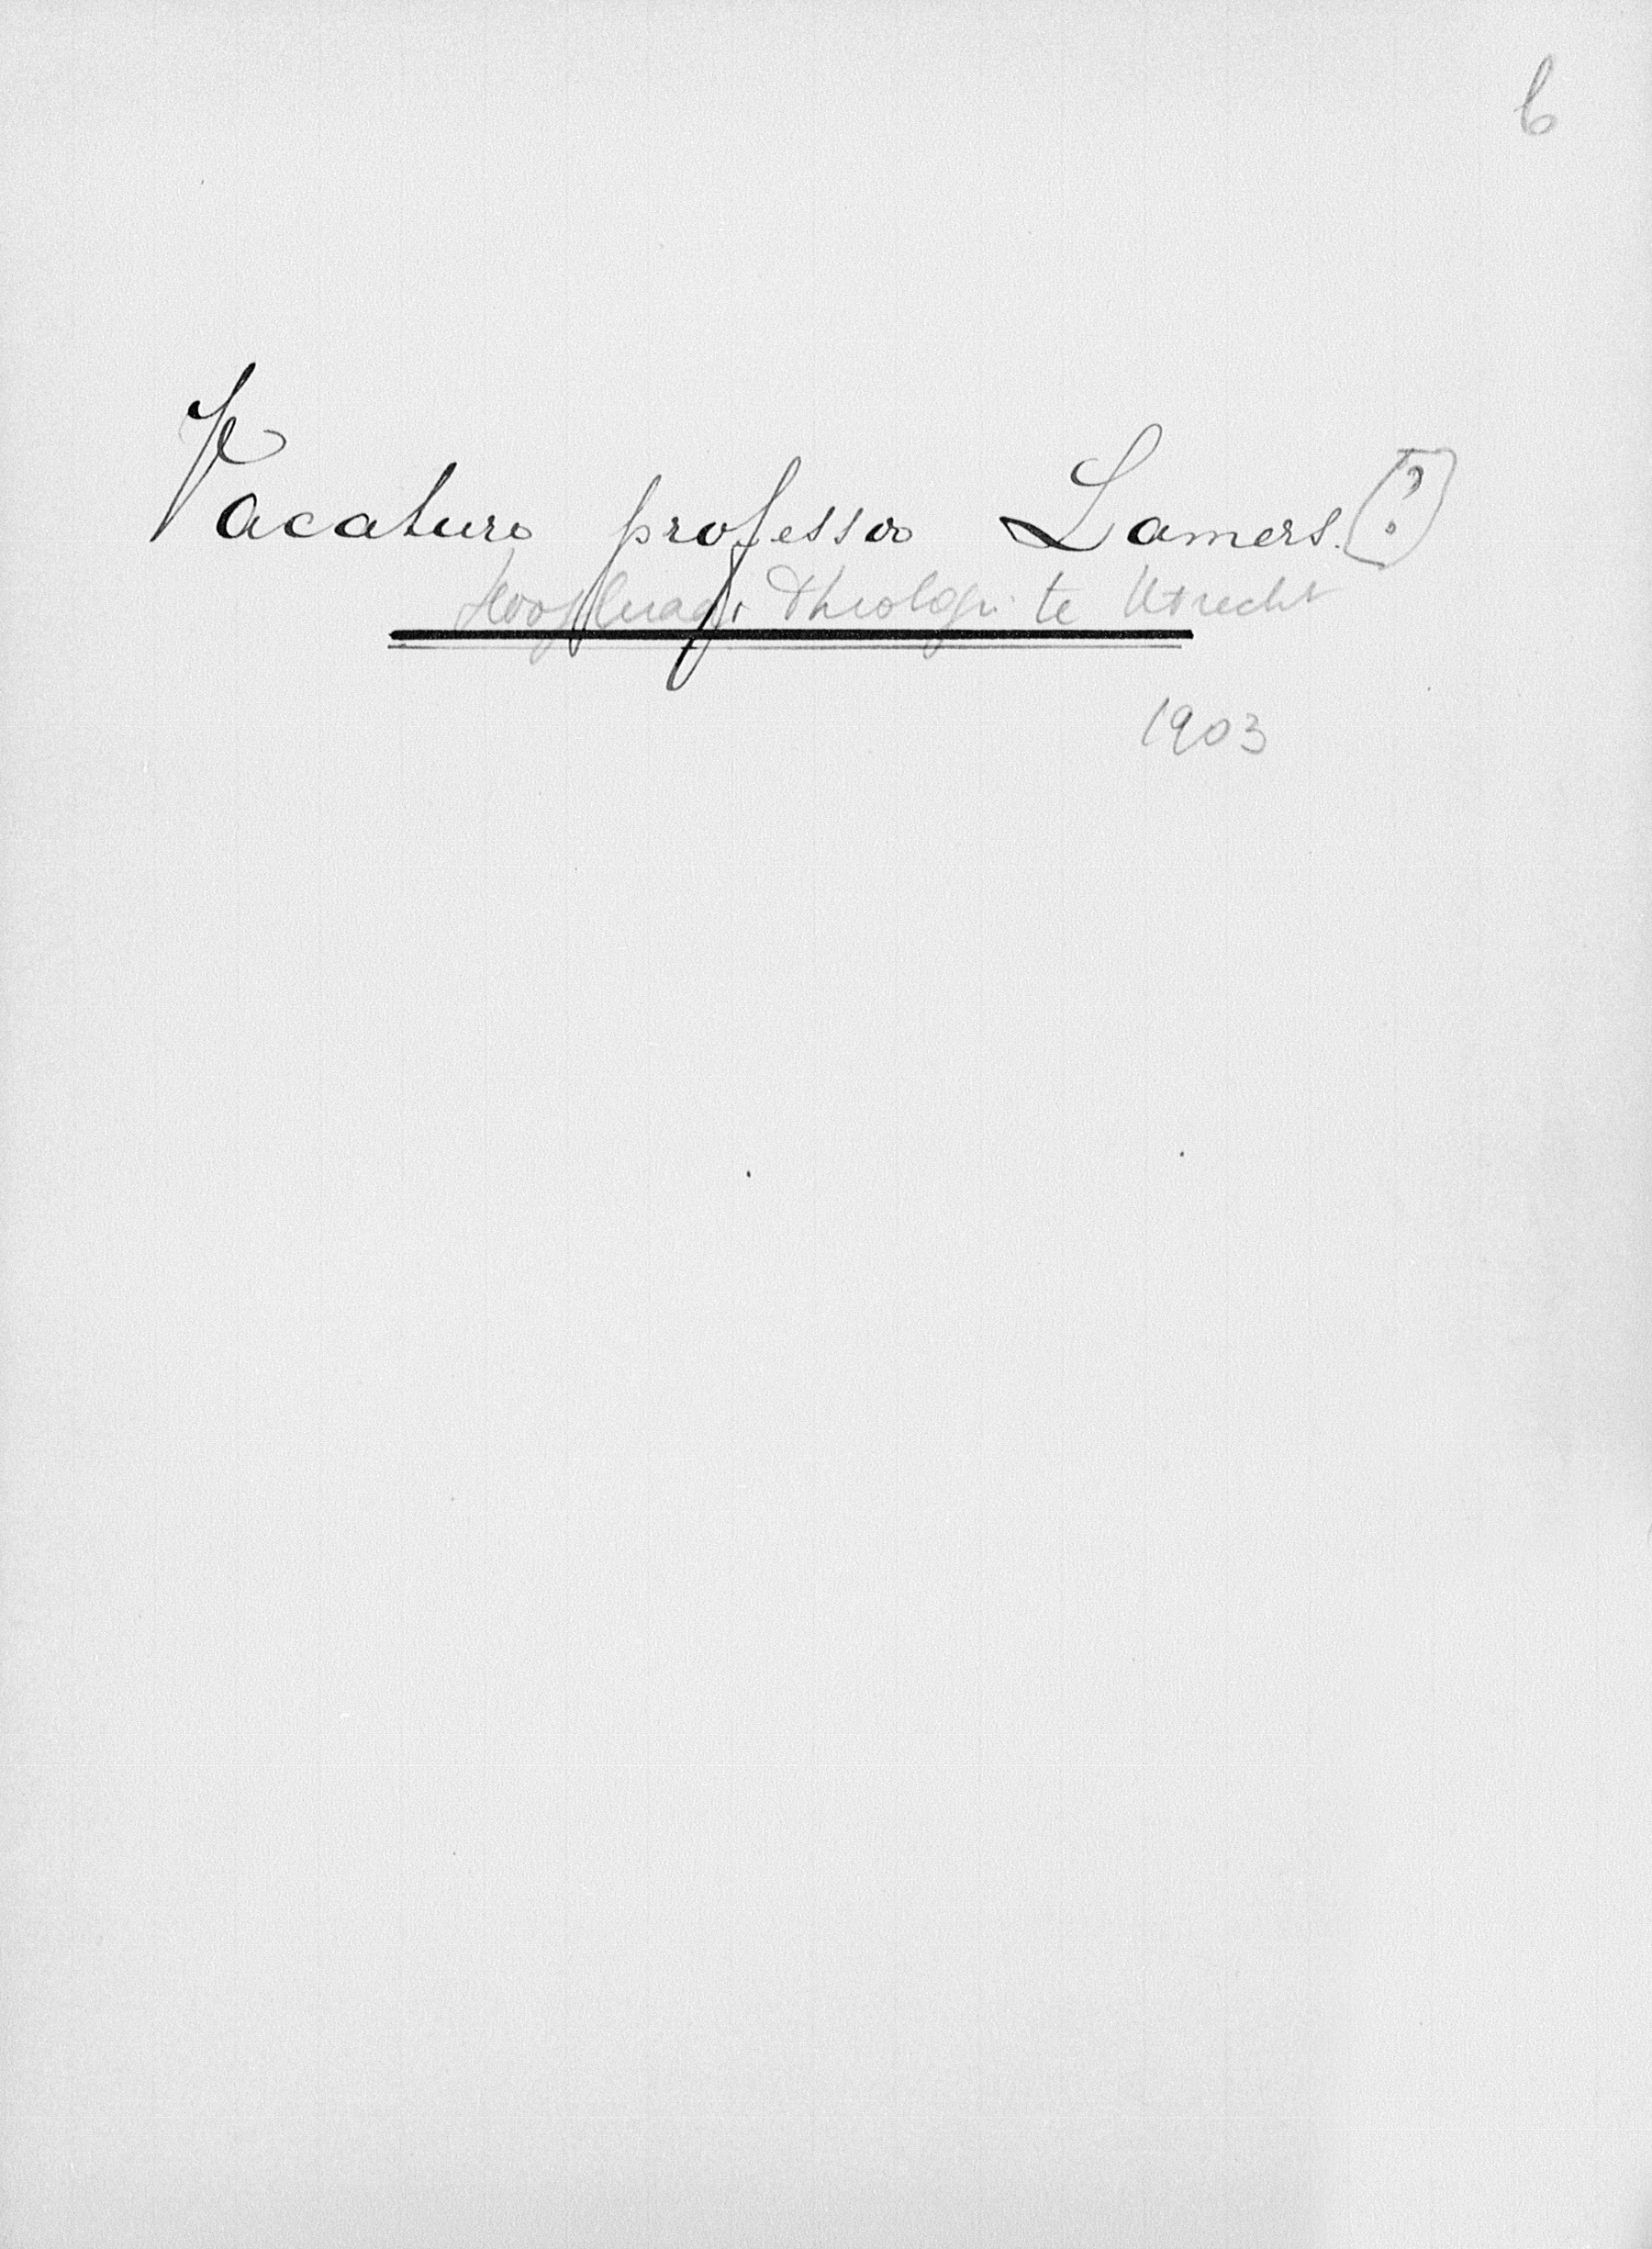 6
Vacature professor Lamers. (?)
Hoogleraar Theologie te Utrecht
1903